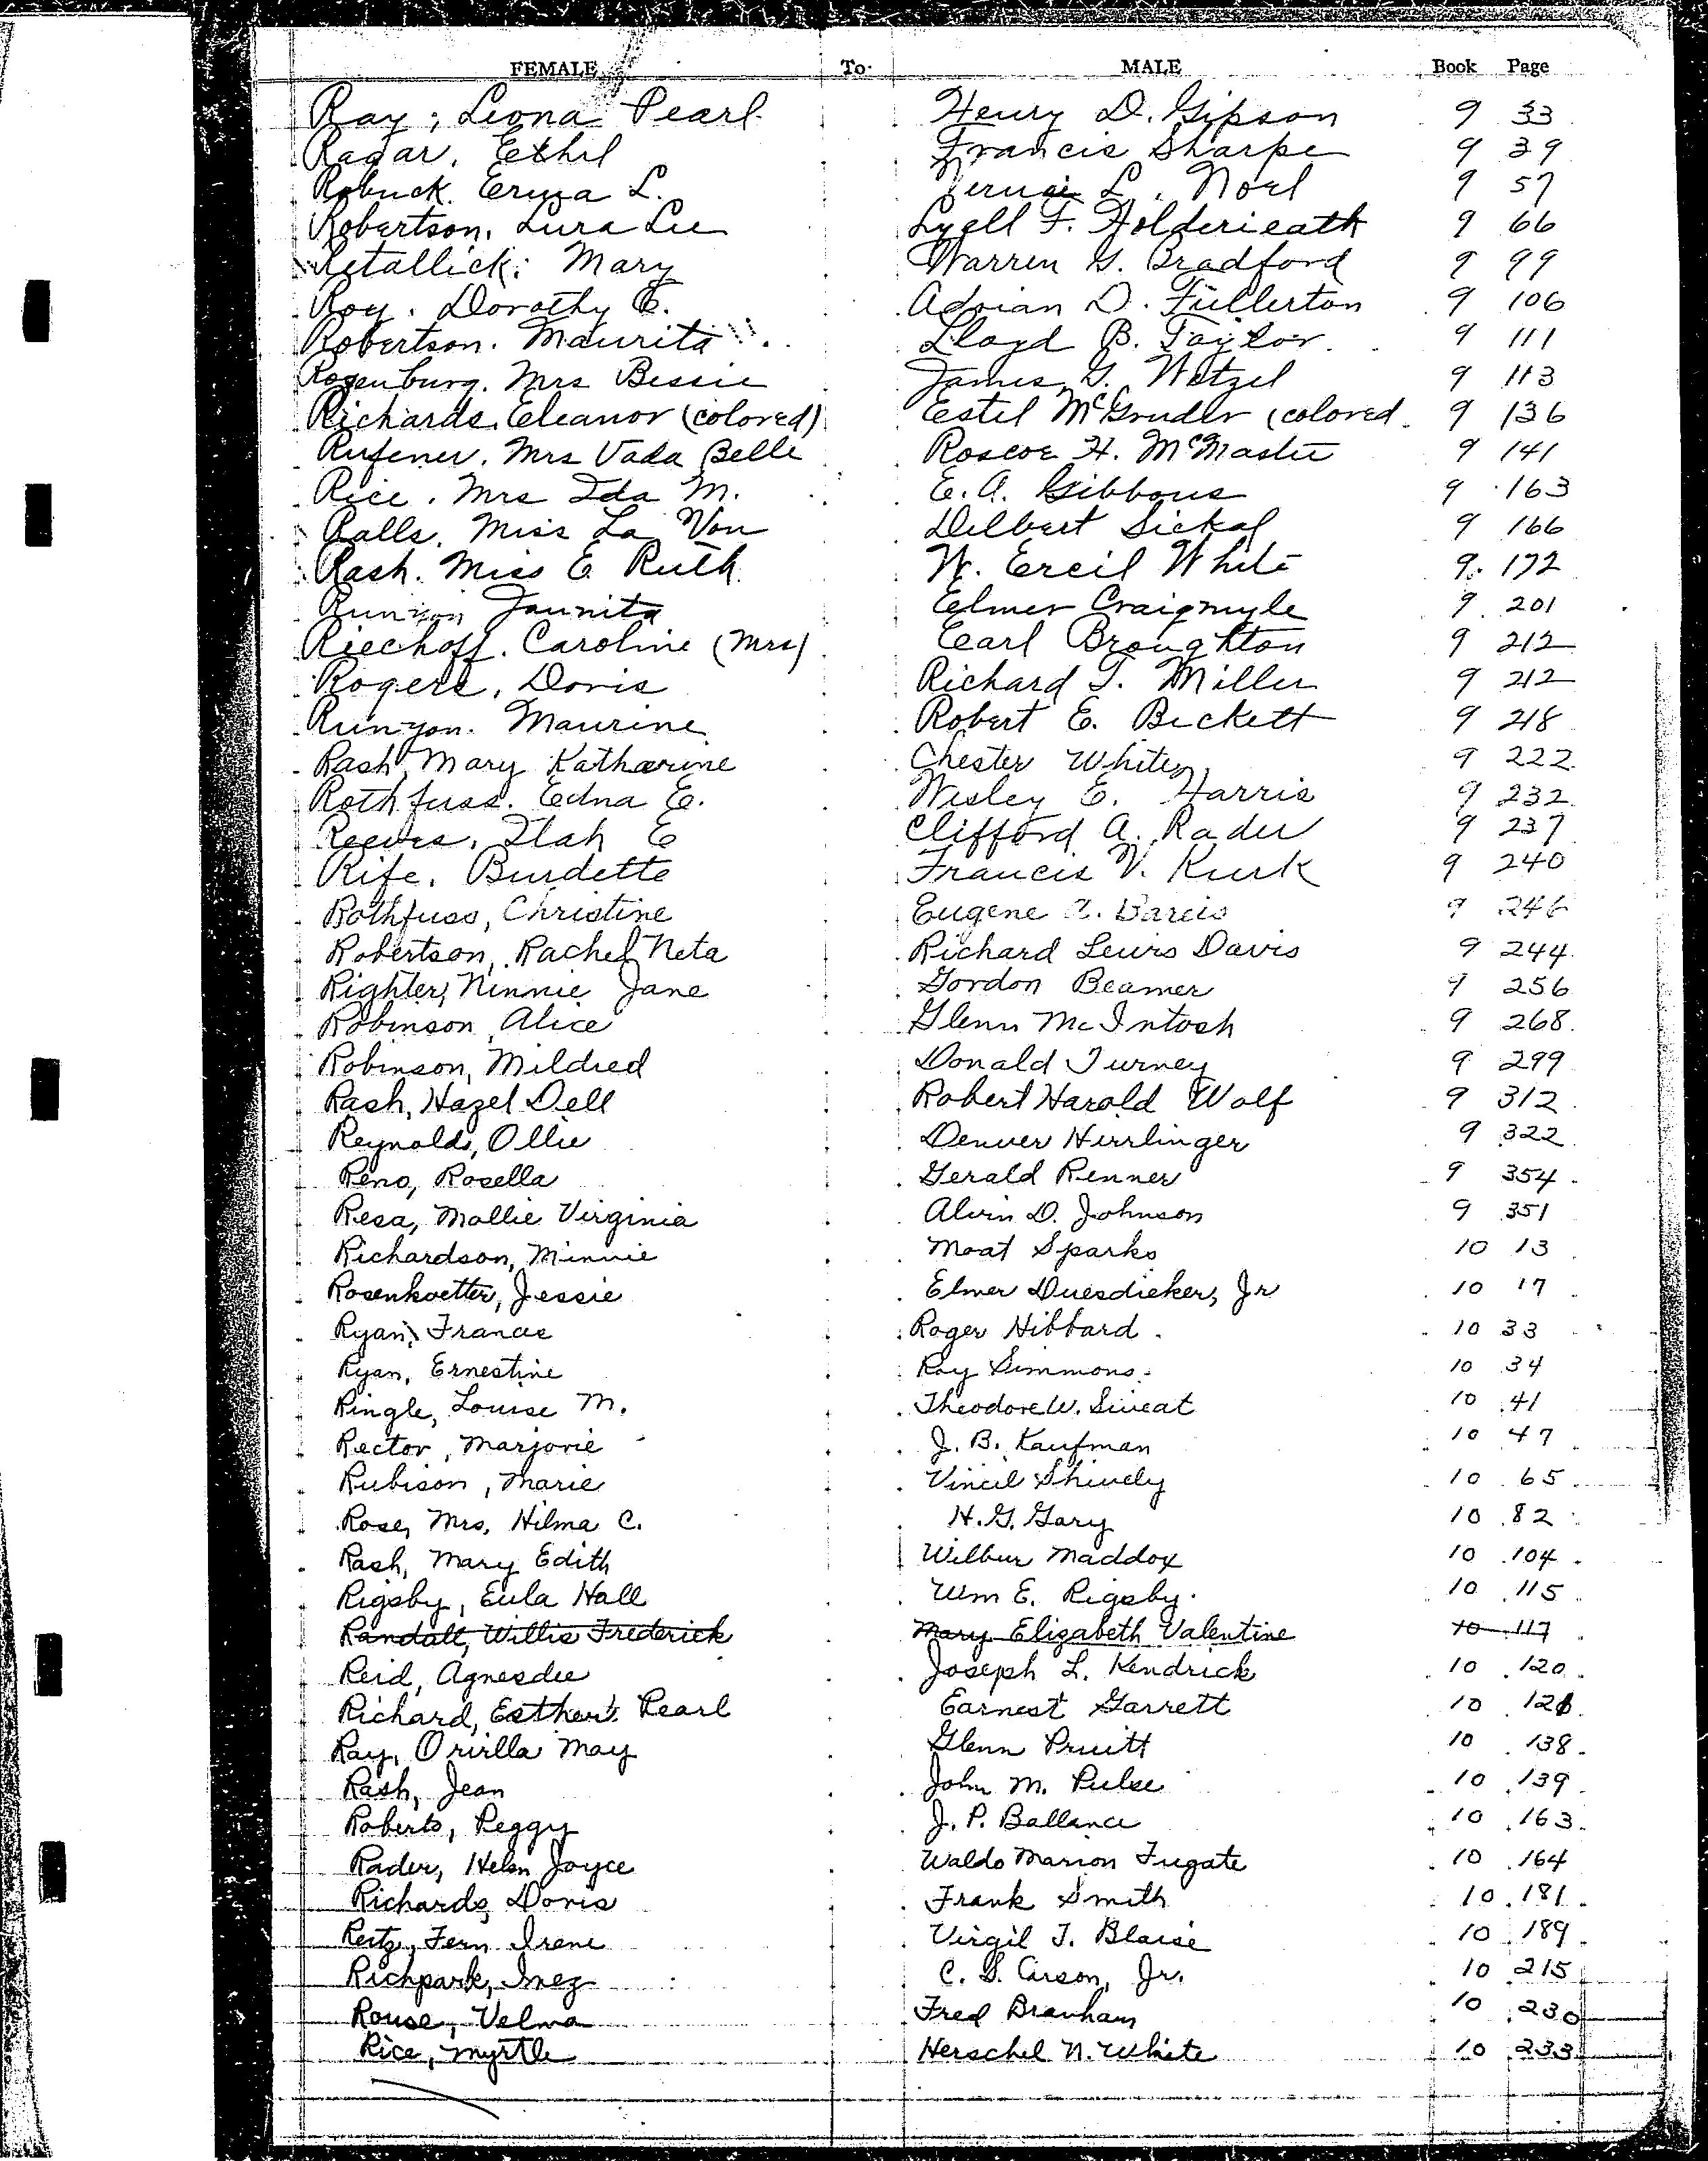 FEMALE To MALE Book Page
Ray, Leona Pearl Henry D. Gipson 9 33
Ragar, Ethel Francis Sharpe 9 39
Robuck. Erma L. L. Noel 9 57
Robertson, Lura Lee Lyell F. Holderieath 9 66
Retallick, Mary Warren G. Bradford 9 99
Roy. Dorothy E. Adrian D. Fullerton 9 106
Robertson. Maurita Lloyd B. Taylor 9 111
Rosenburg. Mrs Bessie James G. Wetzel 9 113
Richards, Eleanor (colored) Estel McGruder (colored 9 136
Rufener. Mrs Vada Belle Roscoe H. McMaster 9 141
Rice. Mrs Ida M. E. A. Gibbons 9 163
Ralls. Miss La Von Delbert Sickal 9 166
Rash. Miss E. Ruth W. Ercil White 9 172
Runyon Jaunita Elmer Craigmyle 9 201
Riechoff. Caroline (Mrs) Earl Broughton 9 212
Rogers, Doris Richard T. Miller 9 212
Runyon. Maurine Robert E. Beckett 9 218
Rash, Mary Katharine Chester White 9 222
Rothfuss. Edna E. Wesley E. Harris 9 232
Reeves, Ilah E Clifford A. Rader 9 237
Rife, Burdette Francis V. Kurk 9 240
Rothfuss, Christine Eugene A. Bareis 9 246
Robertson, Rachel Neta Richard Lewis Davis 9 244
Righter, Ninnie Jane Gordon Beamer 9 256
Robinson, Alice Glenn McIntosh 9 268
Robinson, Mildred Donald Turney 9 299
Rash, Hazel Dell Robert Harold Wolf 9 312
Reynolds, Ollie Denver Hirrlinger 9 322
Reno, Rosella Gerald Renner 9 354
Resa, Mollie Virginia Alvin D. Johnson 9 351
Richardson, Minnie Moat Sparks 10 13
Rosenkoetter, Jessie Elmer Duesdieker, Jr 10 17
Ryan, Frances Roger Hibbard 10 33
Ryan, Ernestine Ray Simmons 10 34
Ringle, Louise M. Theodore W. Sweat 10 41
Rector, Marjorie J. B. Kaufman 10 47
Rubison, Marie Vincil Shively 10 65
Rose, Mrs. Hilma C. H. G. Gary 10 82
Rash, Mary Edith Wilbur Maddox 10 104
Rigsby, Eula Hall Wm E. Rigsby 10 115
Randall, Willis Frederick Mary Elizabeth Valentine 10 117
Reid, Agnesdee Joseph L. Kendrick 10 120
Richard, Esther Pearl Earnest Garrett 10 126
Ray, Orirlla May Glenn Pruitt 10 138
Rash, Jean John M. Pulse 10 139
Roberts, Peggy J. P. Ballance 10 163
Rader, Helen Joyce Waldo Marion Fugate 10 164
Richards, Doris Frank Smith 10 181
Reitz, Fern Irene Virgil T. Blaise 10 189
Richpark, Inez C. S. Carson, Jr. 10 215
Rouse, Velma Fred Branham 10 230
Rice, Myrtle Herschel N. White 10 233